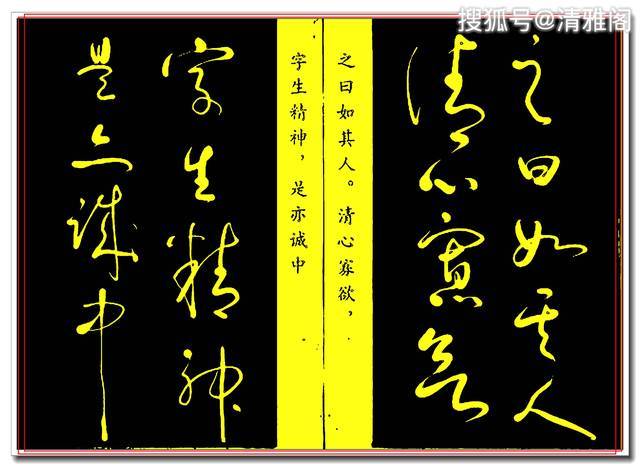 搜狐号@清雅阁
之曰如其人
清心寡欲
字生精神
是亦诚中
之曰如其人。清心寡欲，
字生精神，是亦诚中